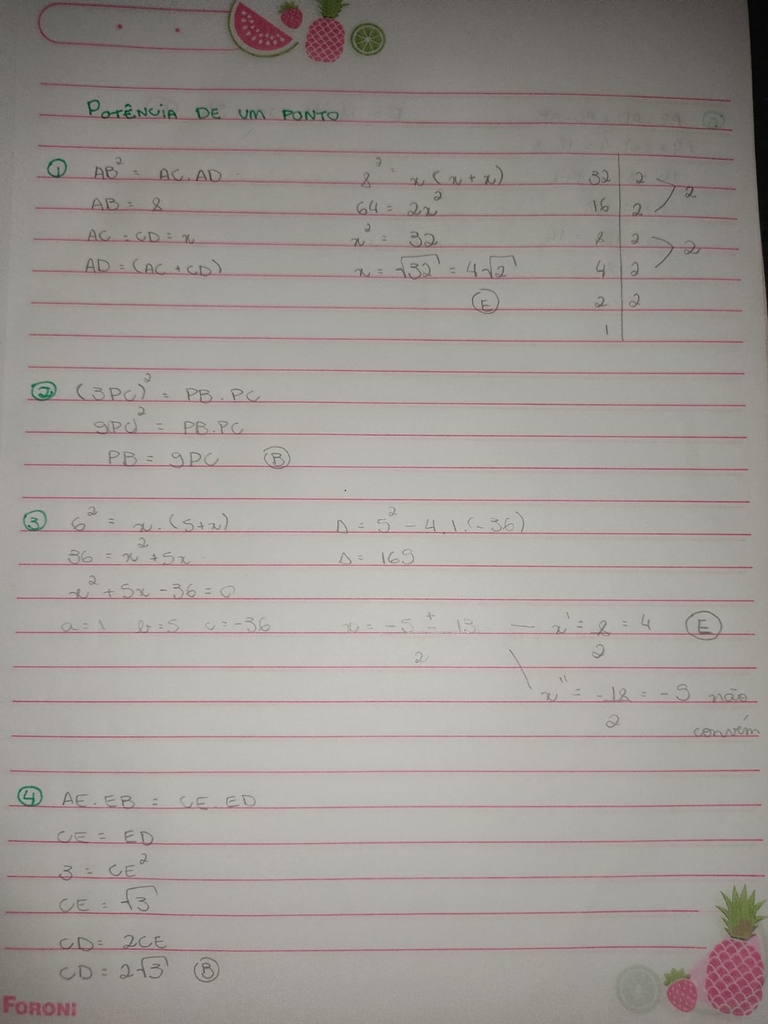 POTÊNCIA DE UM PONTO
① AB² = AC.AD
AB = 8
AC = CD = x
AD = (AC + CD)
8² = x (x + x)
64 = 2x²
x² = 32
x = √32 = 4√2
Ⓔ
32 | 2
16 | 2
2
8 | 2
4 | 2
2
2 | 2
1
② (3PC)² = PB.PC
9PC² = PB.PC
PB = 9PC Ⓑ
③ 6² = x.(5+x)
36 = x² + 5x
x² + 5x - 36 = 0
a = 1 b = 5 c = -36
Δ = 5² - 4.1.(-36)
Δ = 169
x = -5 ± 13 / 2
x' = 8 / 2 = 4 Ⓔ
x'' = -18 / 2 = -9 não
convém
④ AE.EB = CE.ED
CE = ED
3 = CE²
CE = √3
CD = 2CE
CD = 2√3 Ⓑ
FORONI